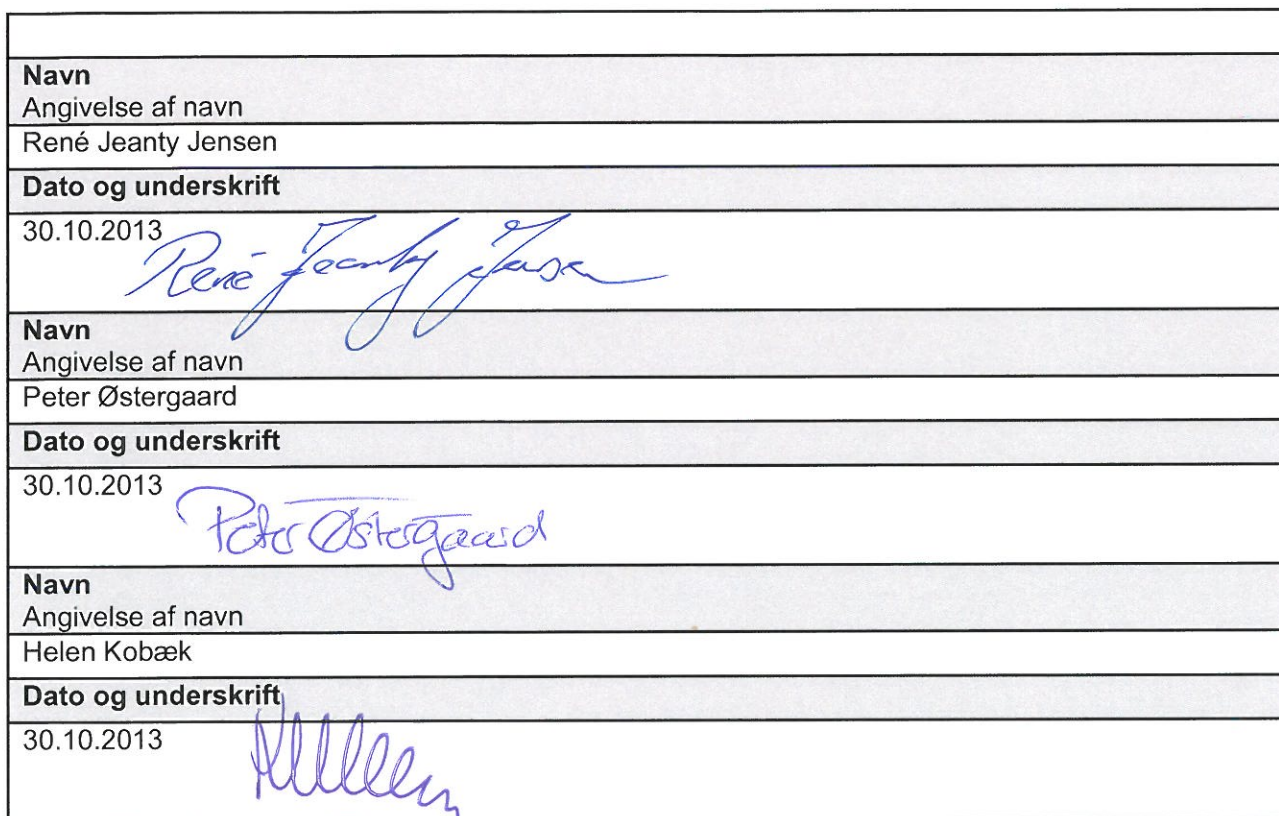 Navn
Angivelse af navn
René Jeanty Jensen
Dato og underskrift
30.10.2013
René Jeanty Jensen
Navn
Angivelse af navn
Peter Østergaard
Dato og underskrift
30.10.2013
Peter Østergaard
Navn
Angivelse af navn
Helen Kobæk
Dato og underskrift
30.10.2013